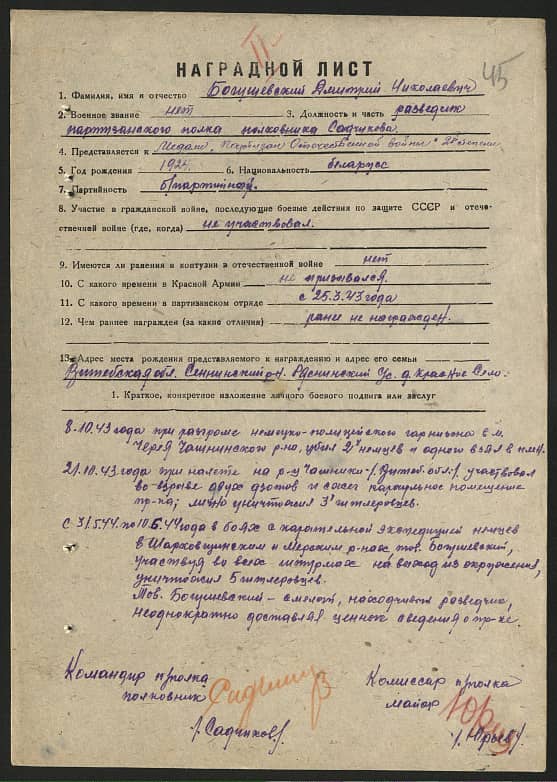 II
45
НАГРАДНОЙ ЛИСТ
1. Фамилия, имя и отчество Богушевский Дмитрий Николаевич
2. Военное звание нет 3. Должность и часть разведчик
партизанского полка полковника Садчикова
4. Представляется к Медали "Партизан Отечественной войны" 2й степени
5. Год рождения 1924 6. Национальность беларус
7. Партийность б/партийный.
8. Участие в гражданской войне, последующие боевые действия по защите СССР и отече-
ственной войне (где, когда) не участвовал.
9. Имеются ли ранения и контузии в отечественной войне нет
10. С какого времени в Красной Армии не призывался.
11. С какого времени в партизанском отряде с 25.3.43 года
12. Чем раннее награжден (за какие отличия) ранее не награжден.
13. Адрес места рождения представляемого к награждению и адрес его семьи
Витебская обл. Сеннинский р-н. с/с. д. Красное Село.
1. Краткое, конкретное изложение личного боевого подвига или заслуг
8.10.43 года при разгроме немецко-полицейского гарнизона в м.
Черея Чашникского р-на, убил 2х немцев и одного взял в плен.
21.10.43 года при налете на р-ц Чашники /Витеб. обл./ участвовал
во взрыве двух дзотов и сжег караульное помещение
пр-ка; лично уничтожил 3х гитлеровцев.
с 31/5.44 по 10.6.44 года в боях с карательной экспедицией немцев
в Шарковщинским и Мерским р-нах тов. Богушевский,
участвуя во всех штурмах на выход из окружения,
уничтожил 5 гитлеровцев.
Тов. Богушевский - смелый, находчивый разведчик,
неоднократно доставлял ценные сведения о пр-ке.
Командир п/полка Комиссар п/полка
полковник майор
/Садчиков/ /Юрьев/